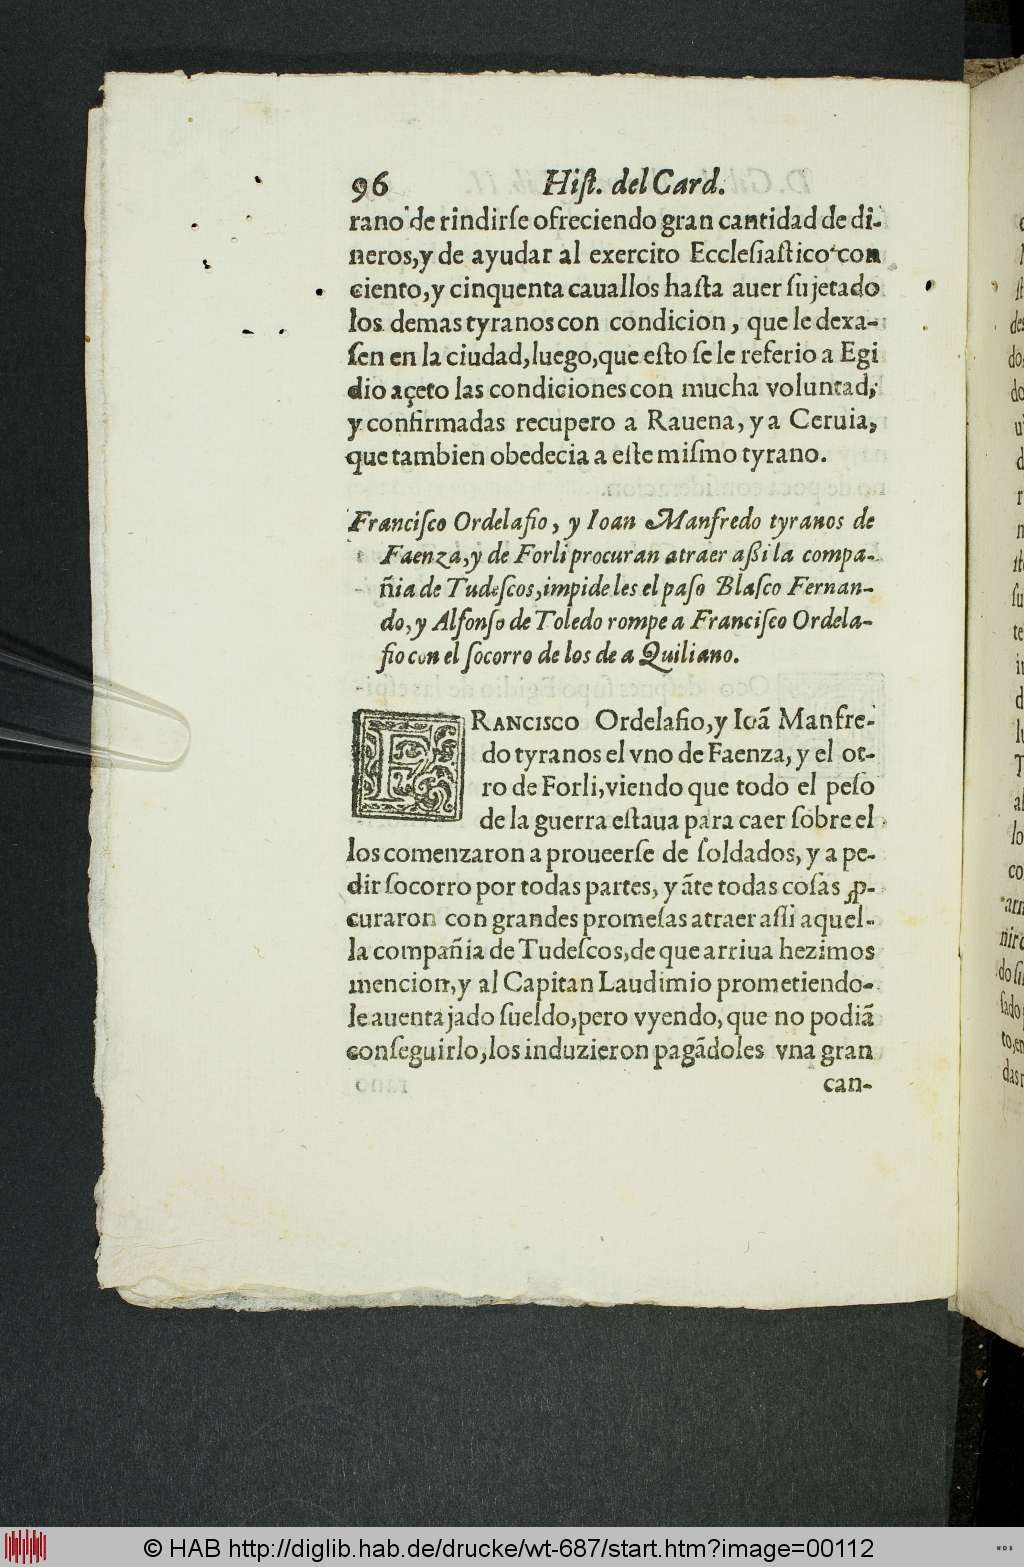 96 Hiſt. del Card.
rano de rindirſe ofreciendo gran cantidad de di-
neros, y de ayudar al exercito Eccleſiaſtico con
ciento, y cinquenta cauallos haſta auer ſujetado
los demas tyranos con condicion, que le dexa-
ſen en la ciudad, luego, que eſto ſe le referio a Egi
dio açeto las condiciones con mucha voluntad,
y confirmadas recupero a Rauena, y a Ceruia,
que tambien obedecia a eſte miſmo tyrano.
Franciſco Ordelafio, y Ioan Manfredo tyranos de
Faenza, y de Forli procuran atraer aßi la compa-
ñia de Tudeſcos, impideles el paſo Blaſco Fernan-
do, y Alfonſo de Toledo rompe a Franciſco Ordela-
fio con el ſocorro de los de a Quiliano.
FRANCISCO Ordelafio, y Ioã Manfre-
do tyranos el vno de Faenza, y el ot-
ro de Forli, viendo que todo el peſo
de la guerra eſtaua para caer ſobre el
los comenzaron a proueerſe de ſoldados, y a pe-
dir ſocorro por todas partes, y ãte todas coſas ꝓ-
curaron con grandes promeſas atraer aſſi aquel-
la compañia de Tudeſcos, de que arriua hezimos
mencion, y al Capitan Laudimio prometiendo-
le auentajado ſueldo, pero vyendo, que no podiã
conſeguirlo, los induzieron pagãdoles vna gran
can-
© HAB http://diglib.hab.de/drucke/wt-687/start.htm?image=00112